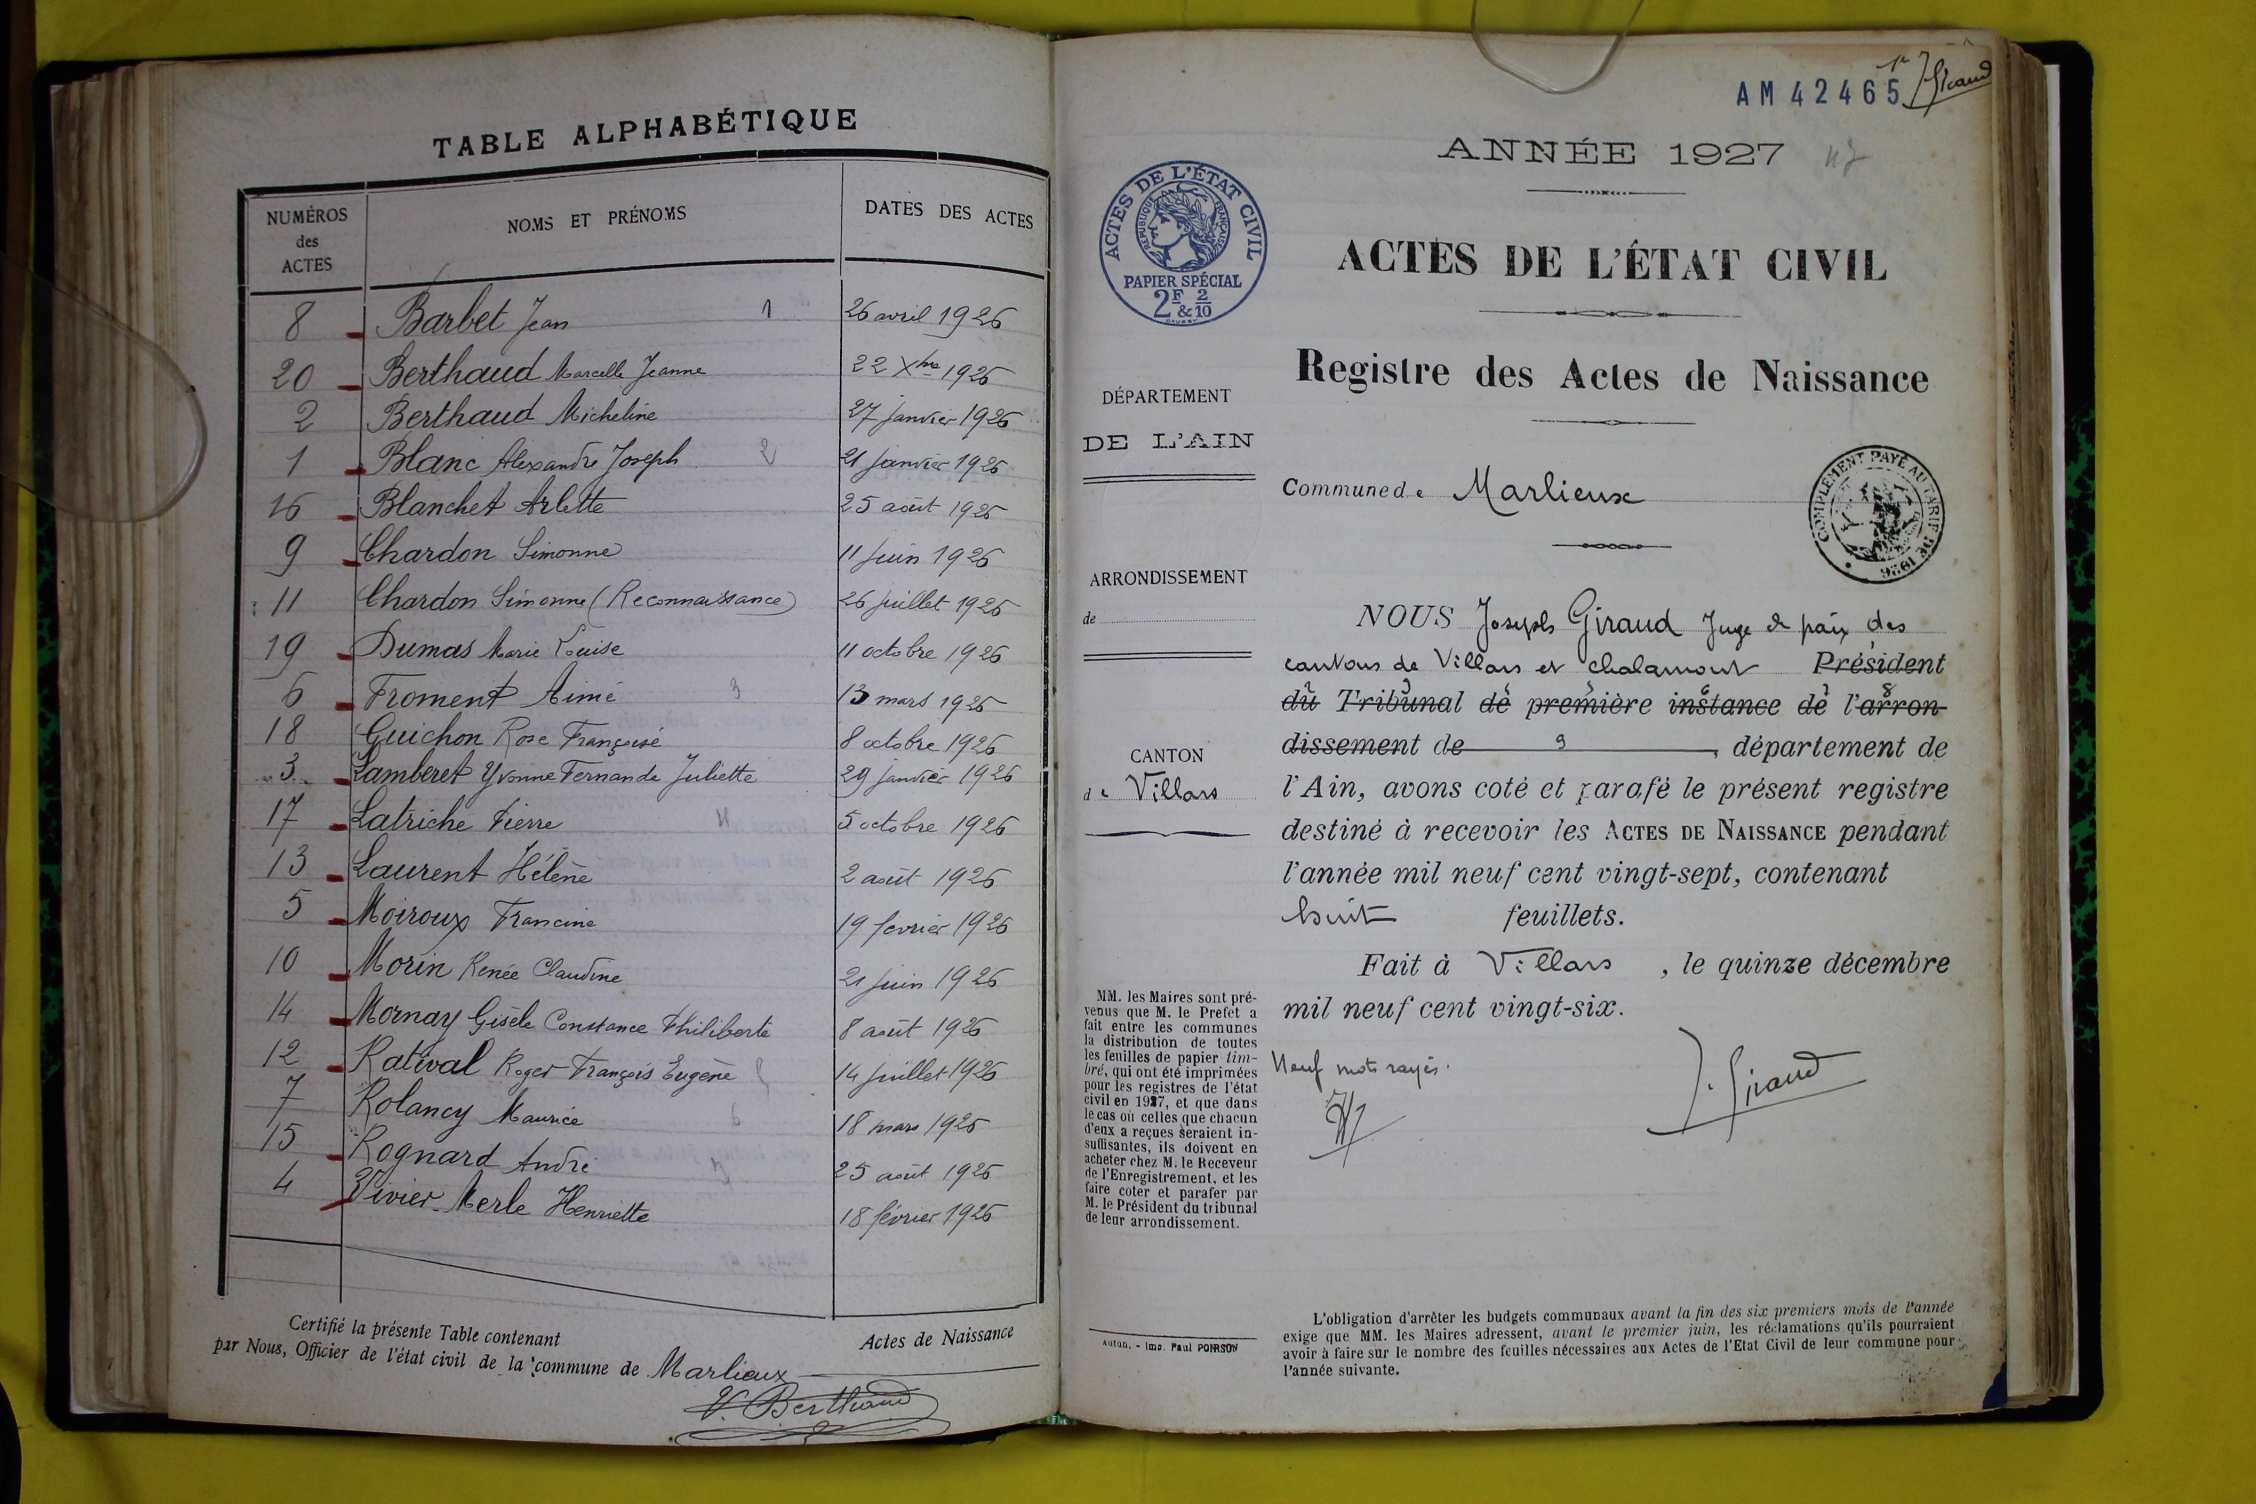 TABLE ALPHABÉTIQUE
NUMÉROS des ACTES NOMS ET PRÉNOMS DATES DES ACTES
8 Barbet Jean 1 26 avril 1926
20 Berthaud Marcelle Jeanne 22 Xbre 1926
2 Berthaud Micheline 27 janvier 1926
1 Blanc Alexandre Joseph 2 21 janvier 1926
16 Blanchet Arlette 25 août 1926
9 Chardon Simonne 11 juin 1926
11 Chardon Simonne (Reconnaissance) 26 juillet 1926
19 Dumas Marie Louise 11 octobre 1926
6 Froment Aimé 3 13 mars 1926
18 Guichon Rose Françoise 8 octobre 1926
3 Lamberet Yvonne Fernande Juliette 29 janvier 1926
17 Latriche Pierre 4 5 octobre 1926
13 Laurent Hélène 2 août 1926
5 Moiroux Francine 19 fevrier 1926
10 Morin Renée Claudine 21 juin 1926
14 Mornay Gisèle Constance Philiberte 8 août 1926
12 Ratival Roger François Eugène 5 14 juillet 1926
7 Rolancy Maurice 6 18 mars 1926
15 Rognard André 25 août 1926
4 Vivier-Merle Henriette 18 février 1926
Certifié la présente Table contenant Actes de Naissance
par Nous, Officier de l'état civil de la commune de Marlieux
V. Berthaud
AM 42465 1er J. Giraud
ANNÉE 1927
ACTES DE L'ÉTAT CIVIL
RÉPUBLIQUE FRANÇAISE
PAPIER SPÉCIAL
2F & 2/10
ACTES DE L'ÉTAT CIVIL
Registre des Actes de Naissance
DÉPARTEMENT
DE L'AIN
Commune de Marlieux
COMPLÉMENT PAYÉ AU TARIF DE 1926
ARRONDISSEMENT
de
CANTON
de Villars
NOUS Joseph Giraud Juge de paix des
cantons de Villars et Chalamont Président
du Tribunal de première instance de l'arron-
dissement de 9, département de
l'Ain, avons coté et parafé le présent registre
destiné à recevoir les ACTES DE NAISSANCE pendant
l'année mil neuf cent vingt-sept, contenant
huit feuillets.
Fait à Villars, le quinze décembre
mil neuf cent vingt-six.
Neuf mots rayés.
J. Giraud
MM. les Maires sont pré-
venus que M. le Prefet a
fait entre les communes
la distribution de toutes
les feuilles de papier tim-
bré, qui ont été imprimées
pour les registres de l'état
civil en 1927, et que dans
le cas où celles que chacun
d'eux a reçues seraient in-
suffisantes, ils doivent en
acheter chez M. le Receveur
de l'Enregistrement, et les
faire coter et parafer par
M. le Président du tribunal
de leur arrondissement.
Autun. - Imp. Paul POIRSON
L'obligation d'arrêter les budgets communaux avant la fin des six premiers mois de l'année
exige que MM. les Maires adressent, avant le premier juin, les réclamations qu'ils pourraient
avoir à faire sur le nombre des feuilles nécessaires aux Actes de l'Etat Civil de leur commune pour
l'année suivante.